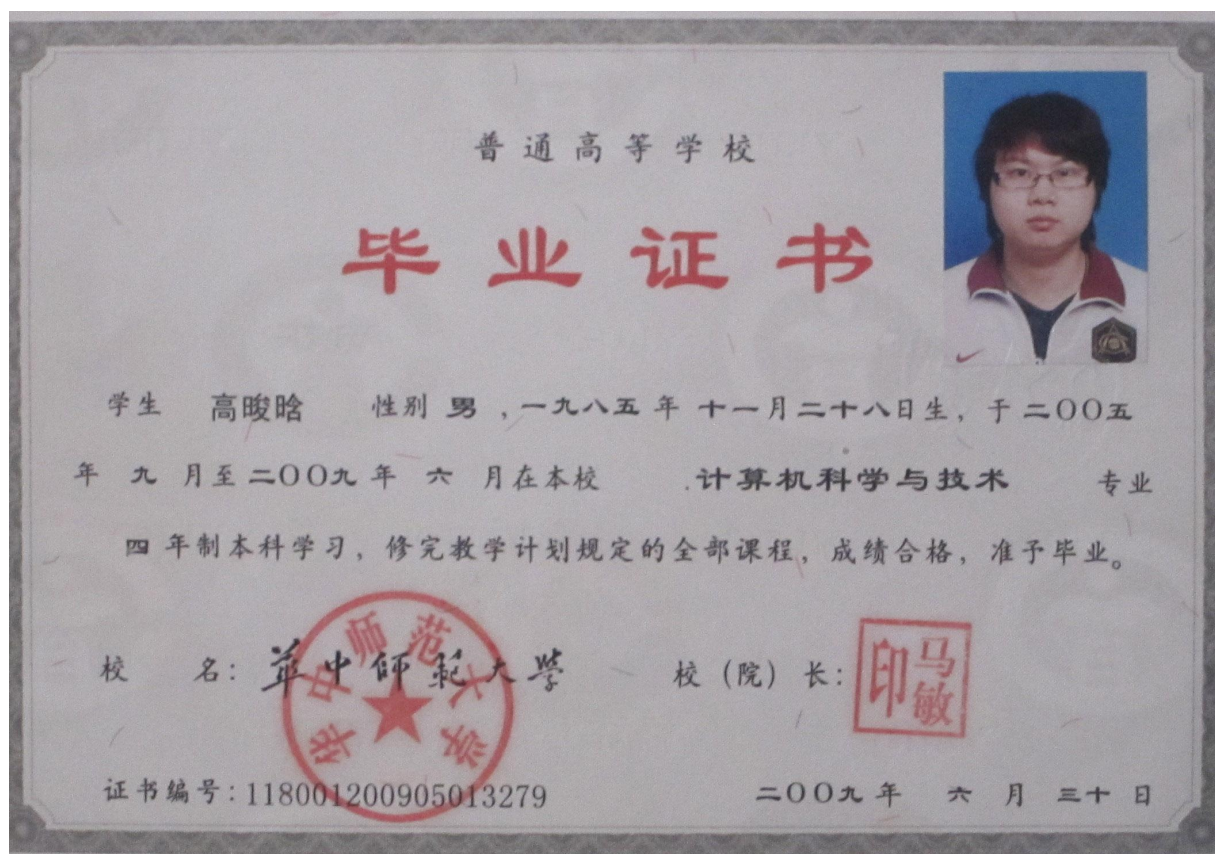 普通高等学校
毕业证书
学生 高晙晗 性别 男 ,一九八五年 十一月二十八日生, 于 二〇〇五
年 九 月至 二〇〇九 年 六 月在本校 .计算机科学与技术 专业
四 年制本科学习, 修完教学计划规定的全部课程, 成绩合格, 准予毕业。
校 名: 華中師範大學
华中师范大学
校 (院) 长:
马敏印
证书编号: 118001200905013279
二〇〇九 年 六 月 三十 日